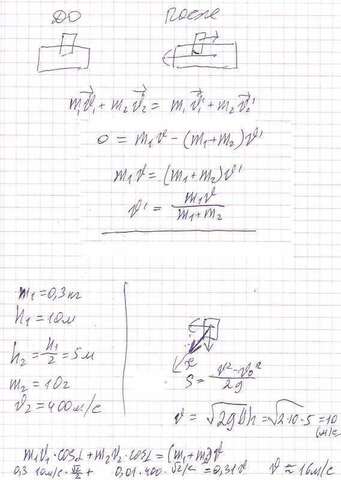 До После
m₁v⃗₁ + m₂v⃗₂ = m₁v⃗₁' + m₂v⃗₂'
0 = m₁v - (m₁+m₂)v'
m₁v = (m₁+m₂)v'
v' = m₁v / m₁+m₂
m₁ = 0,3 кг
h₁ = 10м
h₂ = h₁/2 = 5м
m₂ = 10г
v₂ = 400м/с
x
S = v²-v₀² / 2g
v = √2gh = √2·10·5 = 10 (м/с)
m₁v₁·cosα + m₂v₂·cosα = (m₁+m₂)v
0,3·10м/с·√2/2 + 0,01·400·√2/2 м/с = 0,31v v ≈ 16м/с